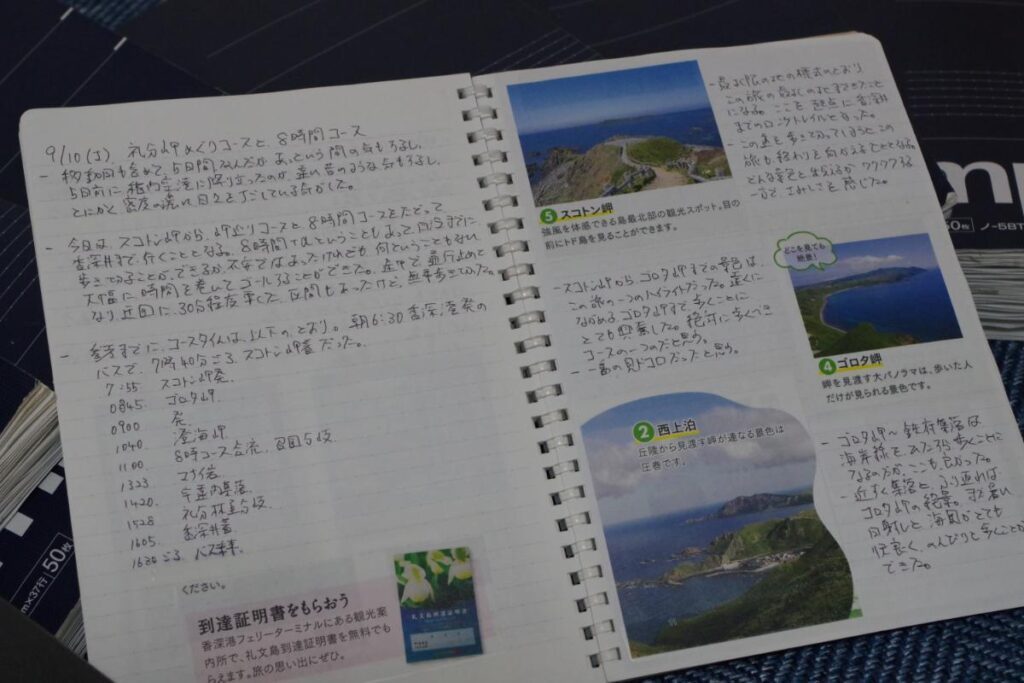 9/10(土) 礼文岬めぐりコースと、8時間コース
- 移動日も含めて、5日間なんだがあっという間の気もするし、
5日前に稚内空港に降り立ったのが、遠い昔のような気もするし、
とにかく密度の濃い日々をすごしている気がした。
- 今日は、スコトン岬から、岬めぐりコースと8時間コースをたどって
香深井まで行くこととなる。8時間コースということもあって
歩ききることができるか不安ではあったけれども何ということもない
大幅に時間を巻いてゴールすることができた。途中で
30分程度 区間もあったけど、無事歩ききった。
- 参考までに、コースタイムは、以下のとおり。朝6:30香深港発の
バスで、7時40分ごろスコトン岬着だった。
7:55 スコトン岬発
0845. ゴロタ岬
0900 発
1040 澄海岬
1100 8時間コース合流
1323
1420 宇遠内集落
1528 礼文林道
1605 香深井着
1620ごろ バス乗車。
ください。
到達証明書をもらおう
香深港フェリーターミナルにある観光案
内所で、礼文島到達証明書を無料でも
らえます。旅の思い出にぜひ。
礼文島到達証明書
5 スコトン岬
強風を体感できる島最北部の観光スポット。目の
前にトド島を見ることができます。
- 最北限の地の様式のとおり
この旅の最北の地まできたこと
になる。ここを起点に香深
までのロングトレイルとなった。
- この道を歩ききってしまうとこの
旅も終わりに向かうこととなる。
どんな景色と出会うかワクワクする
一方で、さみしさを感じた。
- スコトン岬からゴロタ岬までの景色は、
この旅の一つのハイライトだった。遠くに
ながめるゴロタ岬まで歩くことに
とても興奮した。絶対に歩くべき
コースの一つだと思う。
- 一番の見ドコロだったと思う。
どこを見ても
絶景!
4 ゴロタ岬
岬を見渡す大パノラマは、歩いた人
だけが見られる景色です。
2 西上泊
丘陵から見渡す岬が連なる景色は
圧巻です。
- ゴロタ岬〜鉄府集落は、
海岸線をひたすら歩くことに
なるのだが、ここも良かった。
- 近づく集落と、ふり返れば
ゴロタ岬の絶景。
日射しと海風がとても
心地良く、のんびりと歩くことが
できた。
50枚
ノ-5BT
mm×37行 50枚